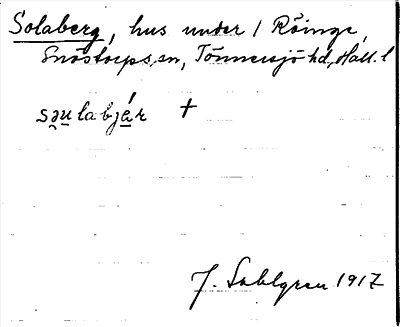 Solaberg, hus under 1 Röinge,
Snöstorps sn, Tönnersjö hd, Hall. l
səu̯labjár +
J. Sahlgren 1917